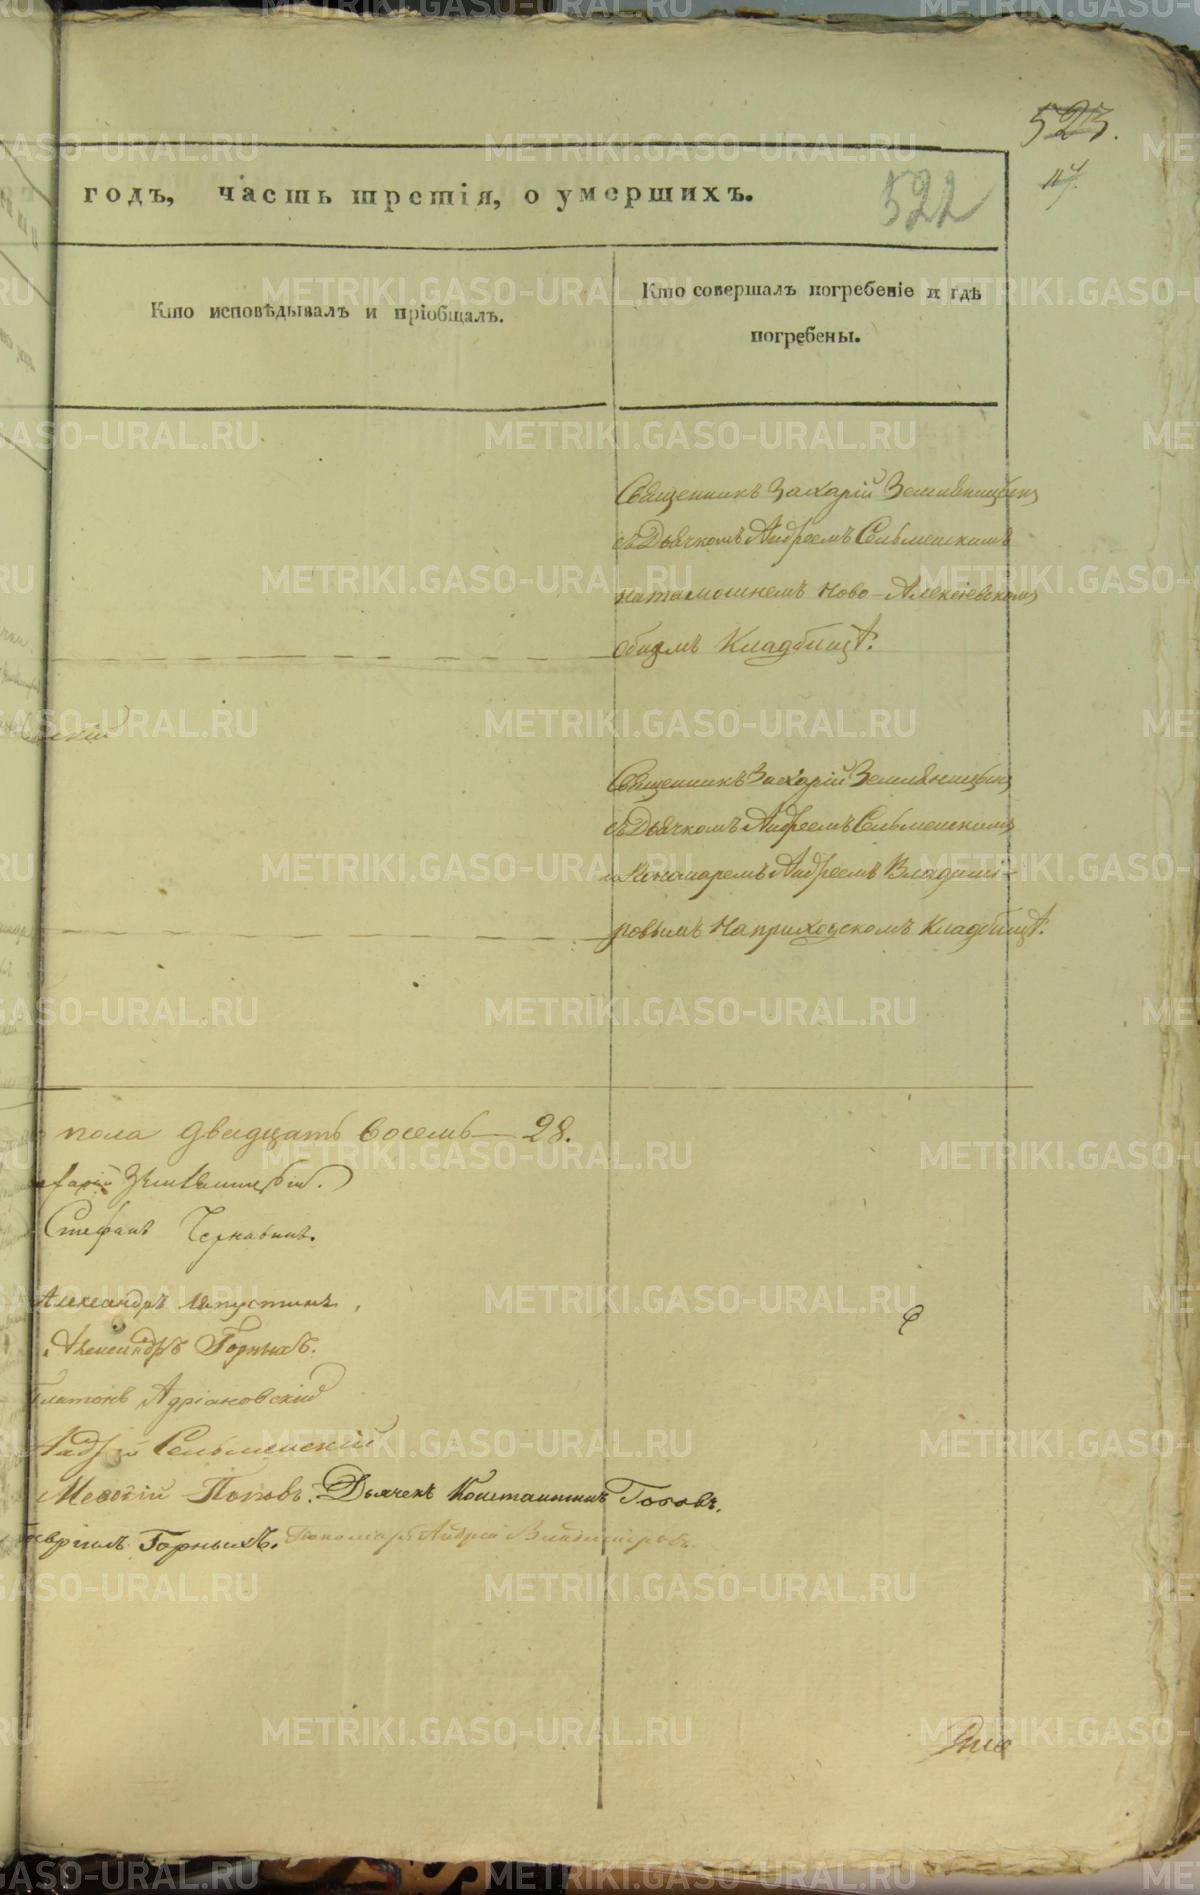 523.
522
годъ, часть третія, о умершихъ.
Кто исповѣдывалъ и пріобщалъ.
Кто совершалъ погребеніе и гдѣ
погребены.
Священникъ Захарій Земляницынъ
съ Дьячкомъ Андреемъ Сельменскимъ
на тамошнемъ Ново-Алексіевскомъ
общемъ Кладбищѣ.
скій
Священникъ Захарій Земляницынъ
съ Дьячкомъ Андреемъ Сельменскимъ
и Пономаремъ Андреемъ Владимі-
ровымъ на приходскомъ Кладбищѣ.
пола двадцать восемь — 28.
харій
Стефанъ Чернавинъ.
Александръ Ляпустинъ.
Александръ Горныхъ.
Платонъ Адріановскій
Сельменскій
Меѳодій Поповъ. Дьячекъ Константинъ
Гавріилъ Горныхъ. Пономарь Андрей Владиміровъ.
METRIKI.GASO-URAL.RU